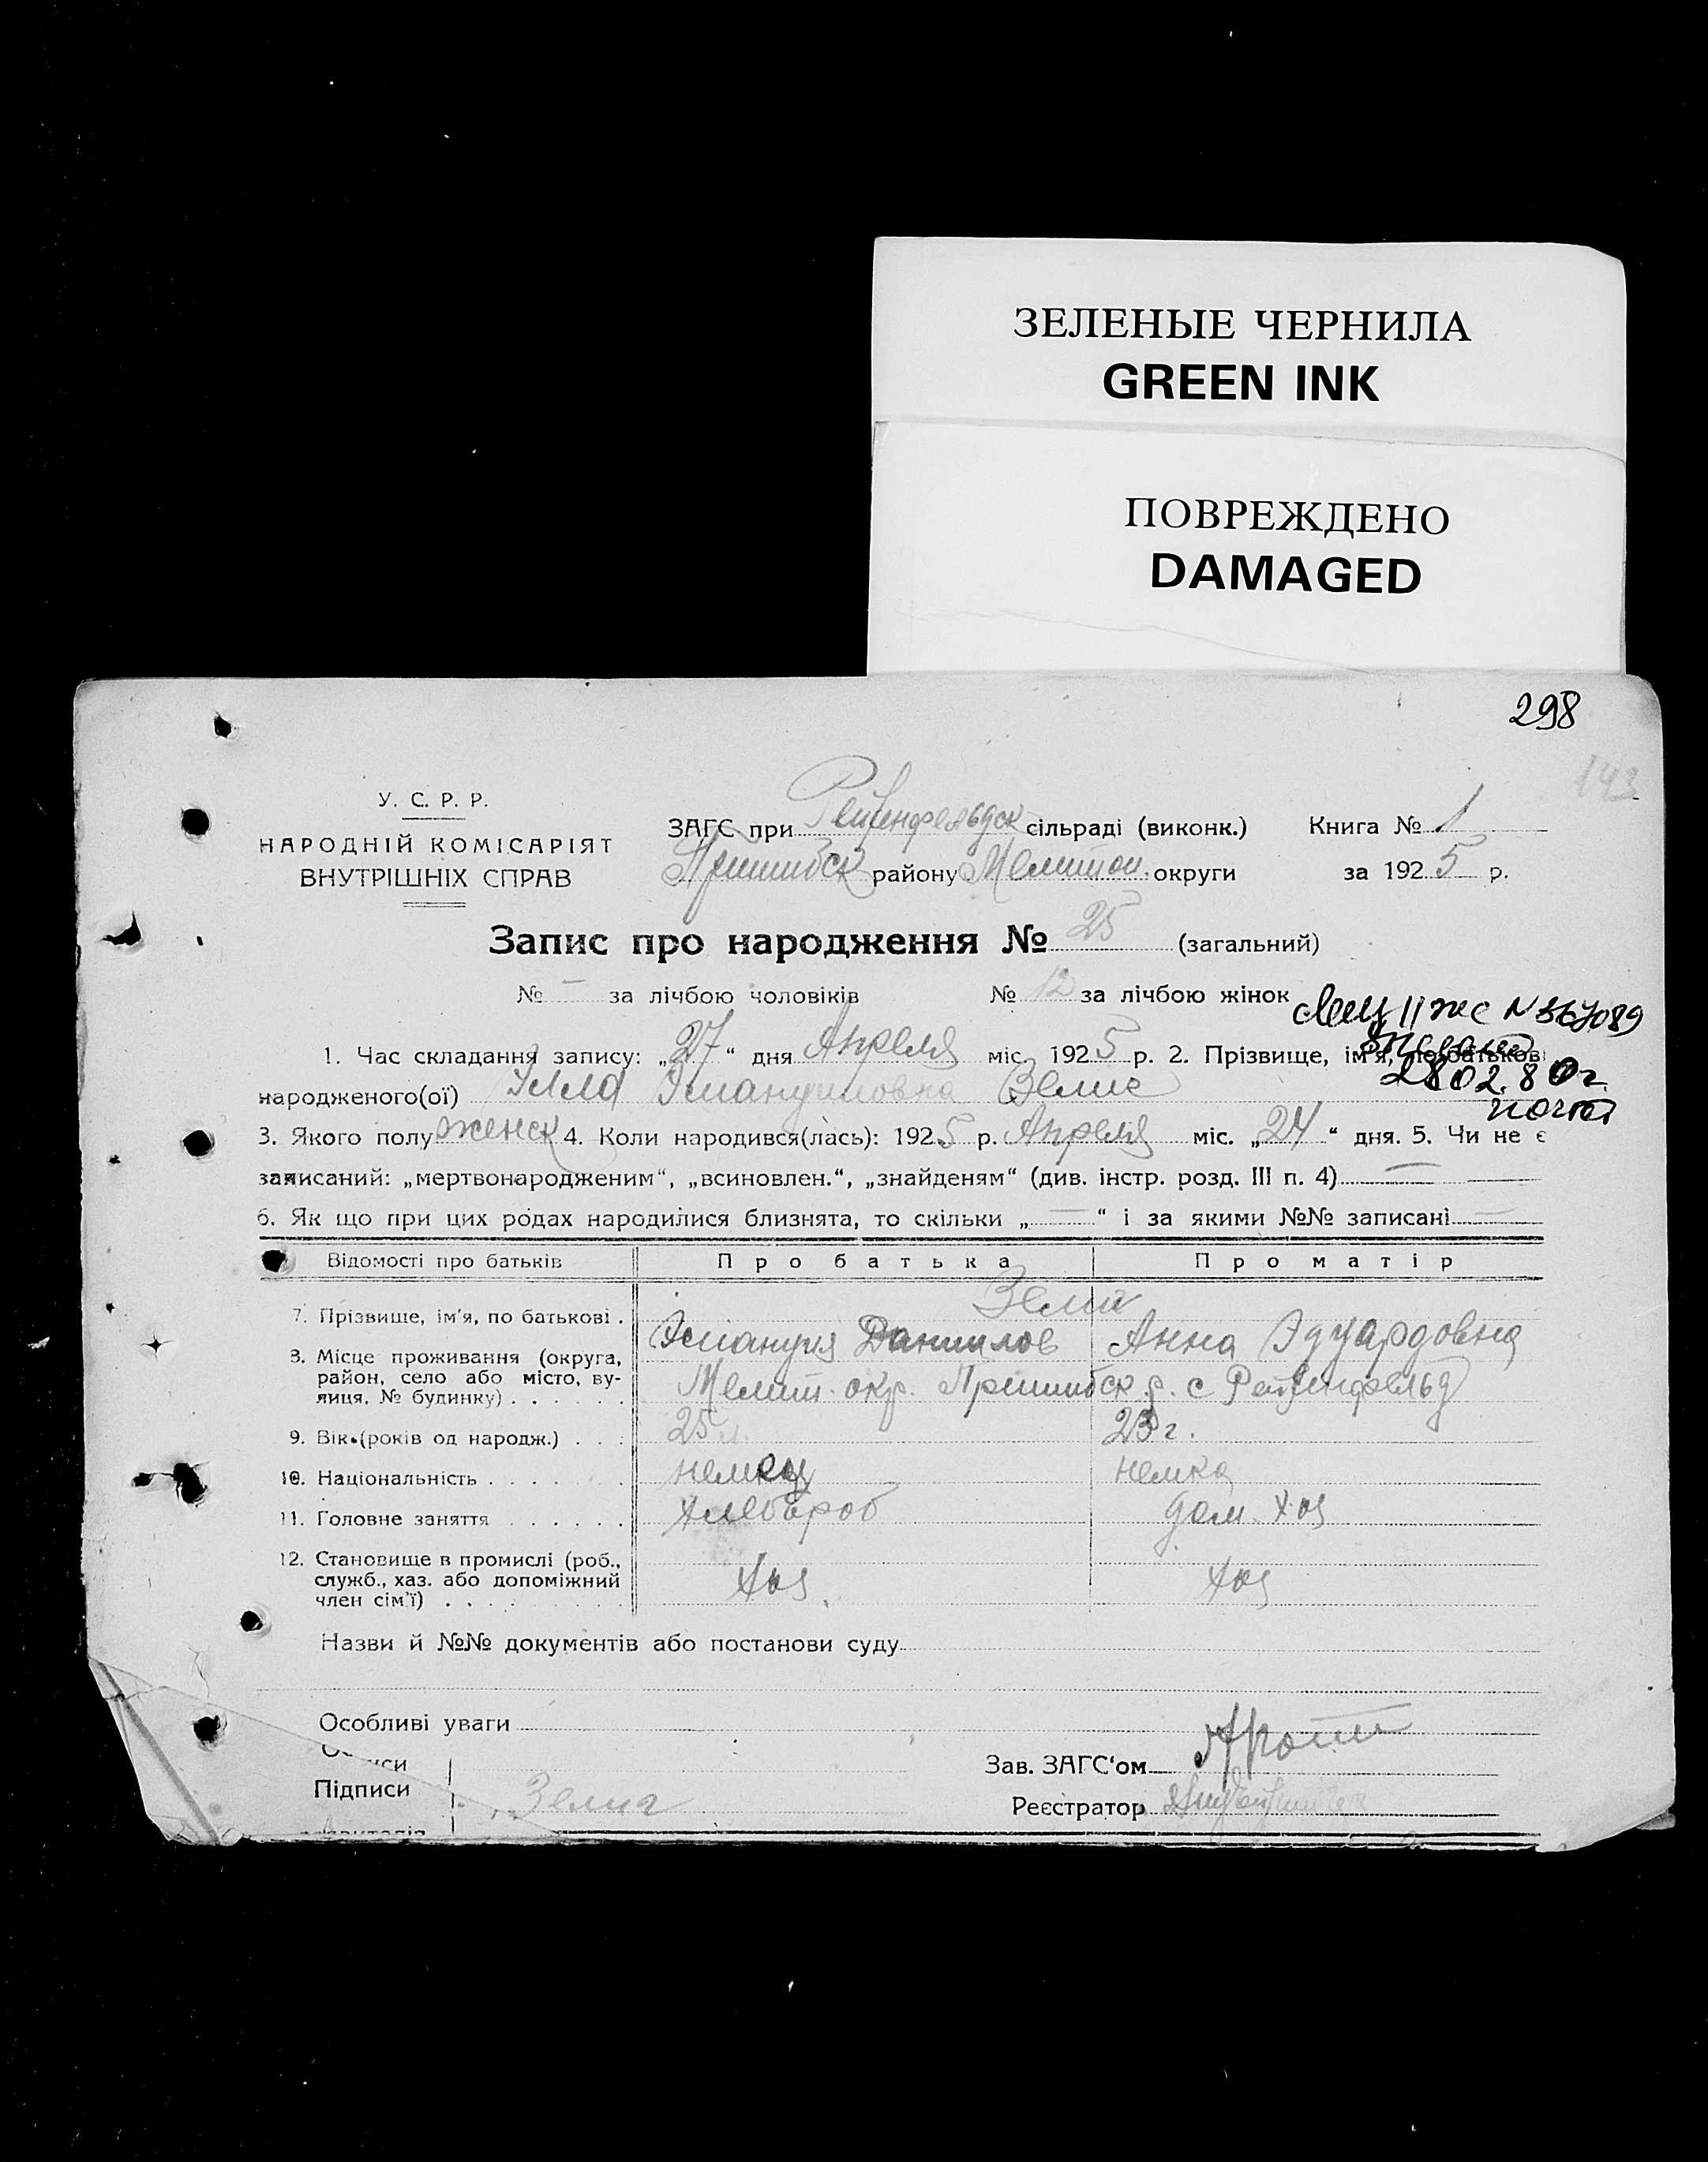 ЗЕЛЕНЫЕ ЧЕРНИЛА
GREEN INK
ПОВРЕЖДЕНО
DAMAGED
298
143
У. С. Р. Р.
НАРОДНІЙ КОМІСАРІЯТ
ВНУТРІШНІХ СПРАВ
ЗАГС при Рейхенфельдск сільраді (виконк.) Книга № 1
Пришибск району Мелитоп. округи за 1925 р.
Запис про народження № 25 (загальний)
№ — за лічбою чоловіків № 12 за лічбою жінок
II жс N 367089
1. Час складання запису: „27“ дня Апреля міс. 1925 р. 2. Прізвище, ім'я, по батькові
2802.80г.
народженого(ої) Элла Эмануиловна Зелиг
3. Якого полу женск 4. Коли народився(лась): 1925 р. Апреля міс. „24“ дня. 5. Чи не є
записаний: „мертвонародженим“, „всиновлен.“, „знайденям“ (див. інстр. розд. III п. 4) —
6. Як що при цих родах народилися близнята, то скільки „—“ і за якими №№ записані —
Відомості про батьків Про батька Про матір
Зелиг
7. Прізвище, ім'я, по батькові . Эмануил Данилов Анна Эдуардовна
8. Місце проживання (округа, район, село або місто, вулиця, № будинку) . . . . . . Мелит. окр. Пришибск. р. с Рейхенфельд
9. Вік (років од народж.) . . . 25 л. 23 г.
10. Національність . . . . . . немец немка
11. Головне заняття . . . . . . хлебороб дом. хоз
12. Становище в промислі (роб., служб., хаз. або допоміжний член сім'ї) . . . . . . . . . хоз. хоз
Назви й №№ документів або постанови суду
Особливі уваги
Підписи Зелиг
Зав. ЗАГС'ом
Реєстратор